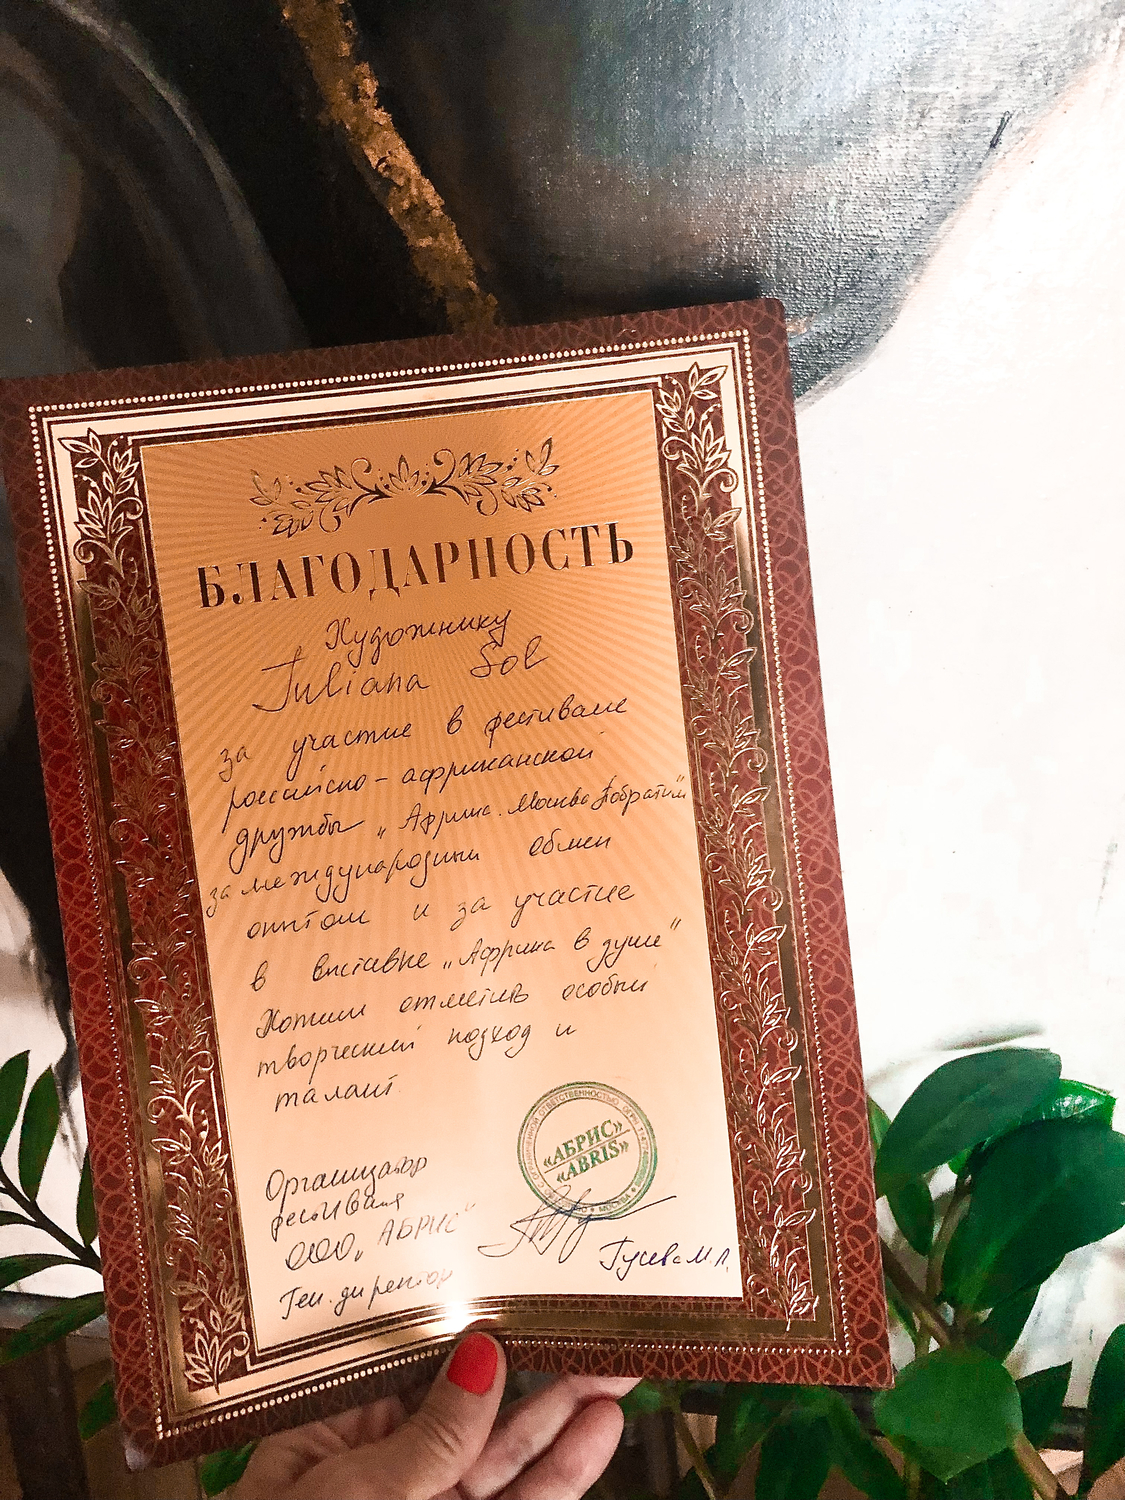 БЛАГОДАРНОСТЬ
Художнику
Juliana Sol
за участие в фестивале
российско-африканской
дружбы „Африка. Москва. Побратим"
за международный обмен
опытом и за участие
в выставке „Африка в душе"
Хотим отметить особый
творческий подход и
талант.
«АБРИС»
«ABRIS»
МОСКВА
Организатор
фестиваля
ООО „АБРИС"
Ген. директор
Гусева М.Л.